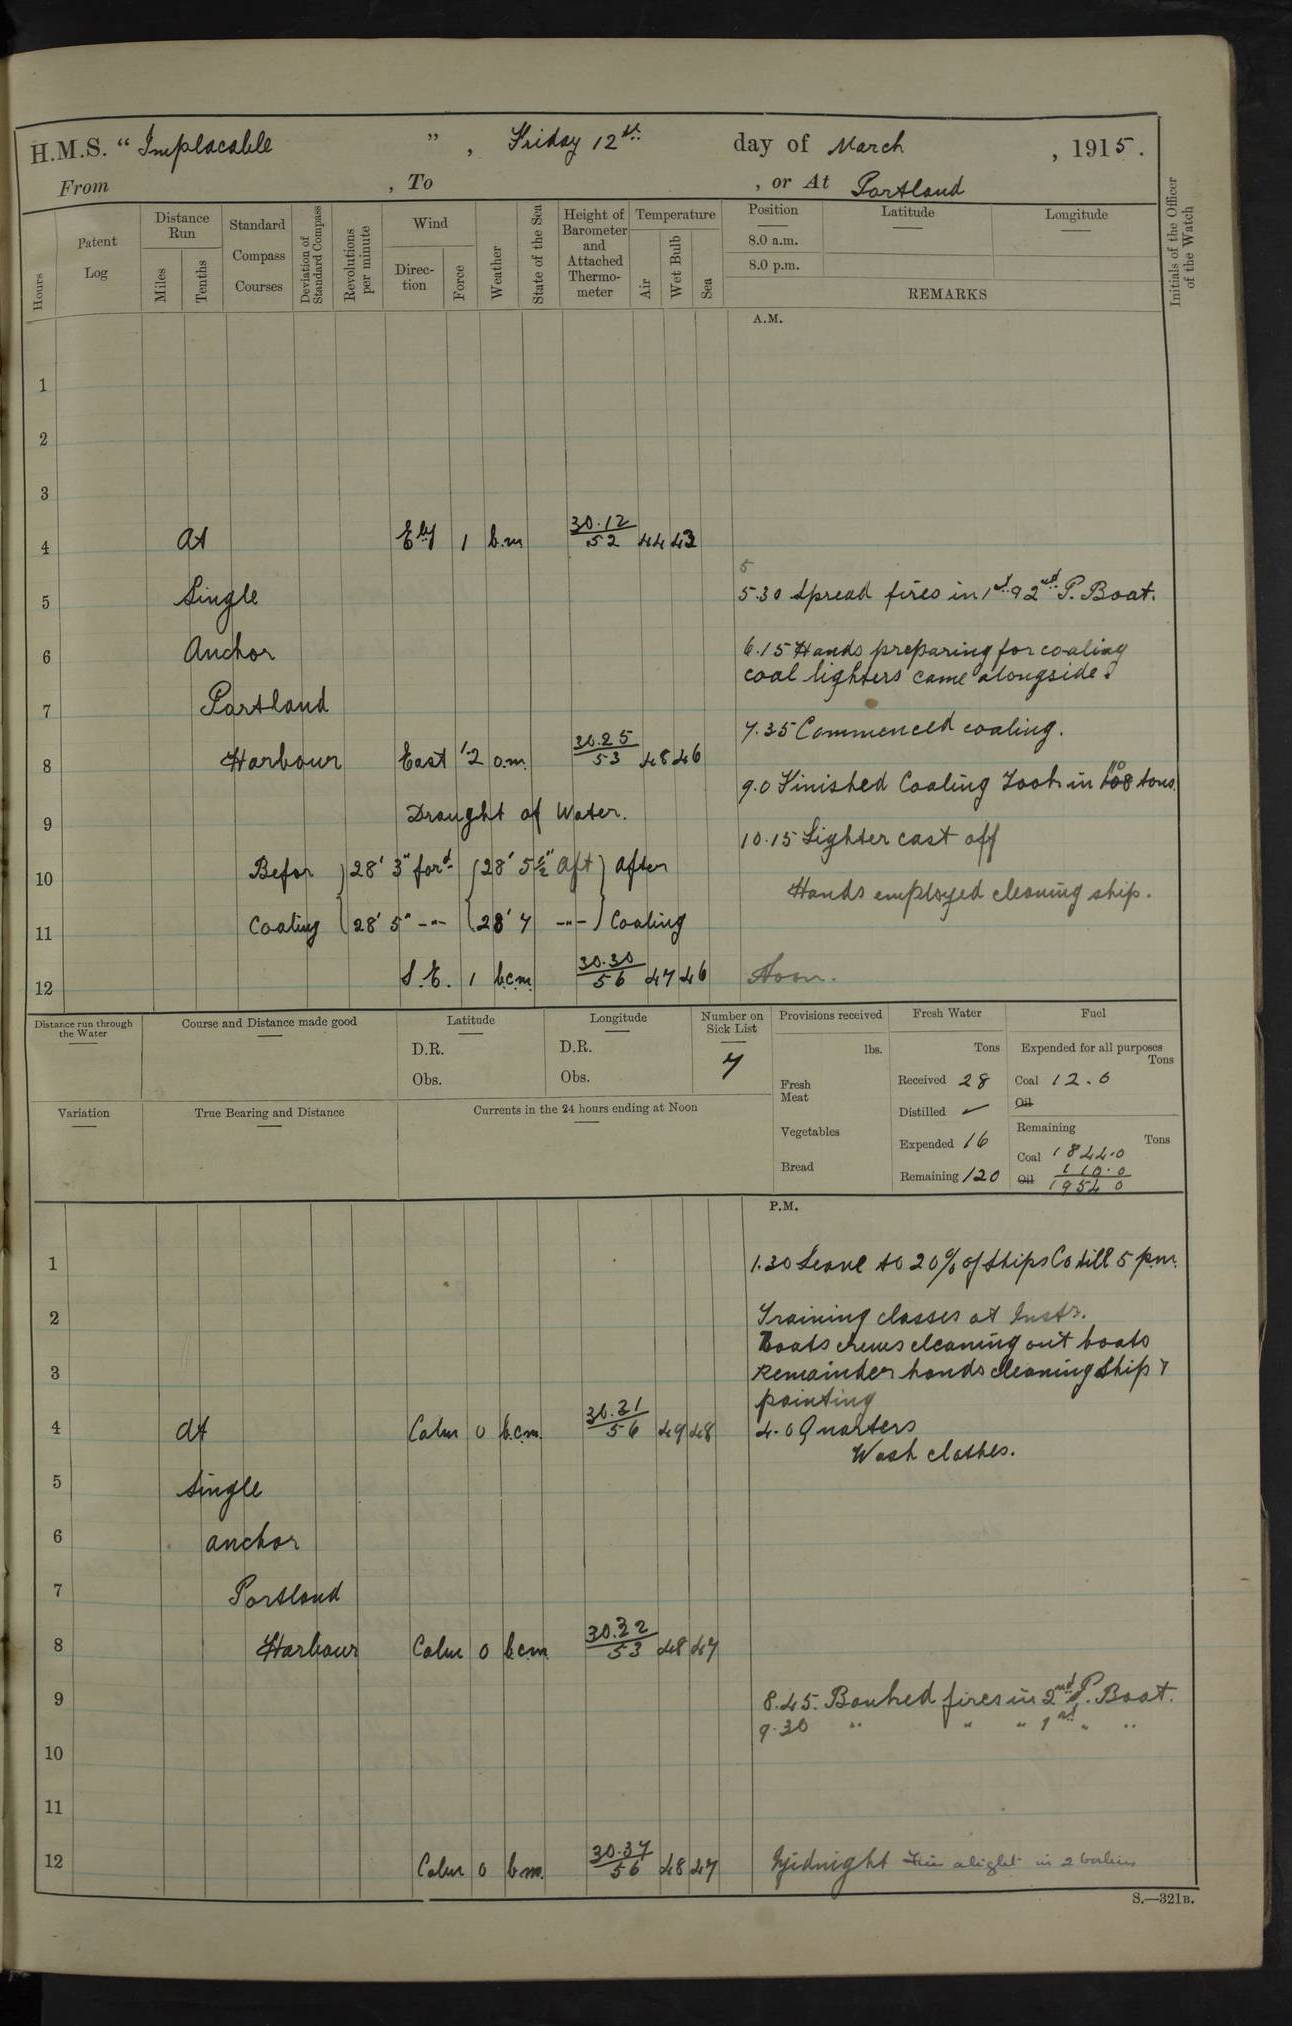 H.M.S. “ Implacable ” , Friday 12th day of March , 1915.
From , To , or At Portland
Hours
Patent Log
Distance Run
Miles
Tenths
Standard Compass Courses
Deviation of Standard Compass
Revolutions per minute
Wind
Direc-tion
Force
Weather
State of the Sea
Height of Barometer and Attached Thermo-meter
Temperature
Air
Wet Bulb
Sea
Position
8.0 a.m.
8.0 p.m.
Latitude
Longitude
REMARKS
Initials of the Officer of the Watch
A.M.
1
2
3
4 At Ely 1 b.m 30.12/52 44 43
5
5 Single 5.30 Spread fires in 1st & 2nd P. Boat.
6 Anchor 6.15 Hands preparing for coaling
coal lighters came alongside.
7 Portland
7.35 Commenced coaling.
8 Harbour East 1.2 o.m. 30.25/53 48 46
9.0 Finished Coaling Took in 110 tons
9 Draught of Water.
10.15 Lighter cast off
10 Befor 28' 3" ford 28' 5½" aft After
Hands employed cleaning ship.
11 Coaling 28' 5" -"- 28' 7 -"- Coaling
12 S.E. 1 b.c.m. 30.30/56 47 46 Noon.
Distance run through the Water
Course and Distance made good
Latitude
D.R.
Obs.
Longitude
D.R.
Obs.
Number on Sick List
7
Provisions received
lbs.
Fresh Meat
Vegetables
Bread
Fresh Water
Tons
Received 28
Distilled ✓
Expended 16
Remaining 120
Fuel
Expended for all purposes
Tons
Coal 12.0
Oil
Remaining
Tons
Coal 1844.0
110.0
Oil 1954 0
Variation
True Bearing and Distance
Currents in the 24 hours ending at Noon
P.M.
1 1.30 Leave to 20% of Ships Co till 5 p.m.
2 Training classes at Instr.
Boats crews cleaning out boats
3 Remainder hands cleaning Ship &
painting
4 At Calm 0 b.c.m. 30.31/56 49 48 4.0 Quarters
Wash clothes.
5 Single
6 anchor
7 Portland
8 Harbour Calm 0 b.c.m 30.32/53 48 47
9 8.45. Banked fires in 2nd P. Boat.
9.30 " " " 1st " "
10
11
12 Calm 0 b.m. 30.37/56 48 47 Midnight Fires alight in 2 boilers
S.—321B.